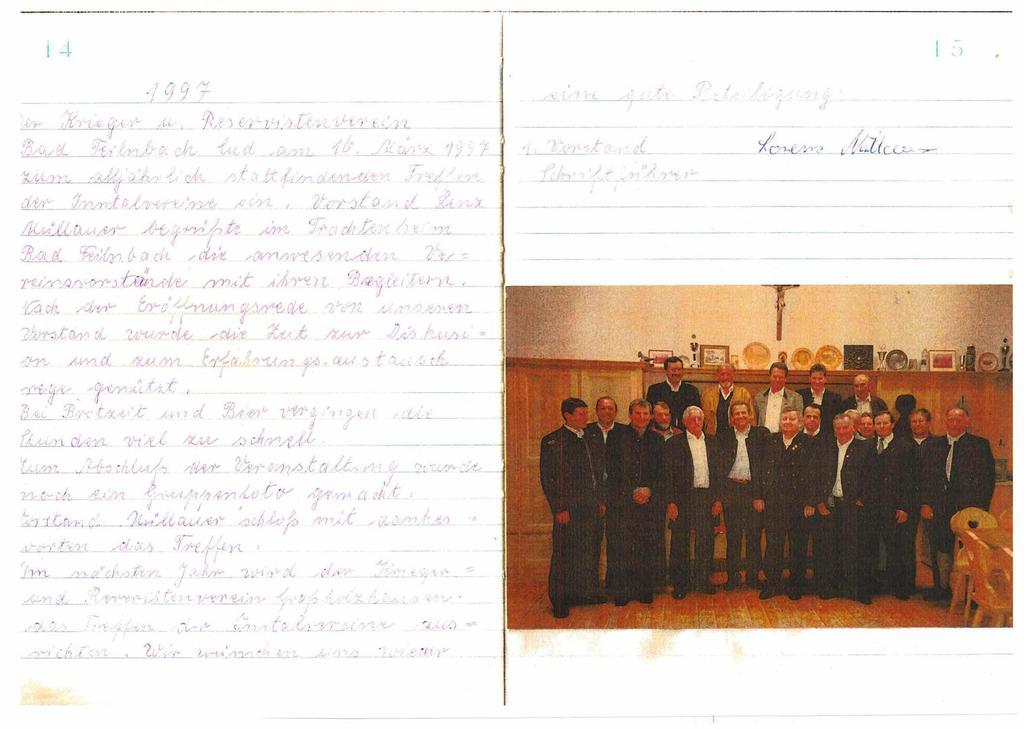 14
1997
der Krieger u. Reservistenverein
Bad Feilnbach lud am 16. März 1997
zum alljährlich stattfindenden Treffen
der Inntalvereine ein. Vorstand Lenz
Müllauer begrüßte im Trachtenheim
Bad Feilnbach die anwesenden Ve=
reinsvorstände mit ihren Begleitern.
Nach der Eröffnungsrede von unseren
Vorstand wurde die Zeit zur Diskusi=
on und zum Erfahrungs.austausch
rege genützt.
Bei Brotzeit und Bier vergingen die
Stunden viel zu schnell.
Zum Abschluß der Veranstaltung wurde
noch ein Gruppenfoto gemacht.
Vorstand Müllauer schloß mit dankes=
worten das Treffen.
Im nächsten Jahr wird der Krieger=
und Reservistenverein Großholzhausen
das Treffen der Inntalvereine aus=
richten. Wir wünschen uns wieder
15
eine gute Beteiligung.
1. Vorstand Lorenz Müllauer
Schriftführer